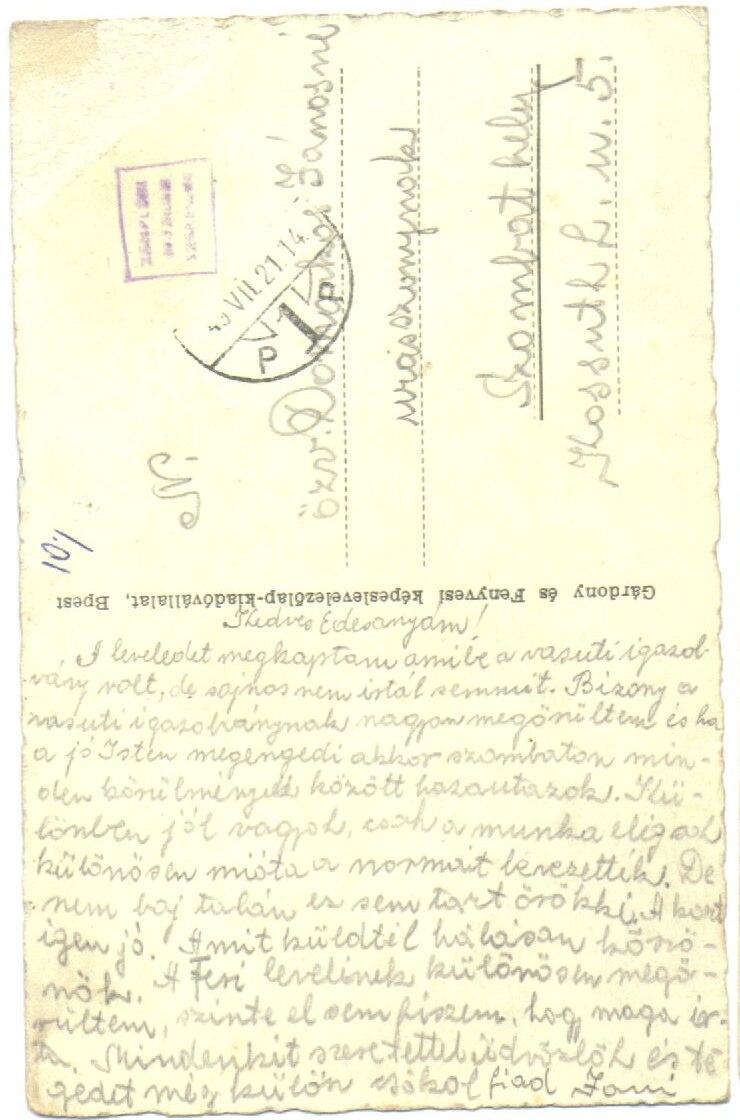 özv. Domonkos Jánosné
úriasszonynak
Szombathely
Kossuth L. u. 5.
49 VII. 21. 14
P 1 P
N.
101
Gárdony és Fenyvesi képeslevelezőlap-kiadóvállalat, Bpest
Kedves Édesanyám!
A leveledet megkaptam amibe a vasuti igazol-
vány volt, de sajnos nem irtál semmit. Bizony a
vasuti igazolványnak nagyon megörültem és ha
a jó Isten megengedi akkor szombaton min-
den körülmények között hazautazok. Kü-
lönben jól vagyok, csak a munka elég sok
különösen mióta a normát bevezették. De
nem baj talán ez sem tart örökké. A koszt
igen jó. Amit küldtél hálásan köszö-
nök. A Feri levelinek különösen megö-
rültem, szinte el sem hiszem, hogy maga ir-
ta. Mindenkit szeretettel üdvözlök és té
gedet még külön csókol fiad Jani